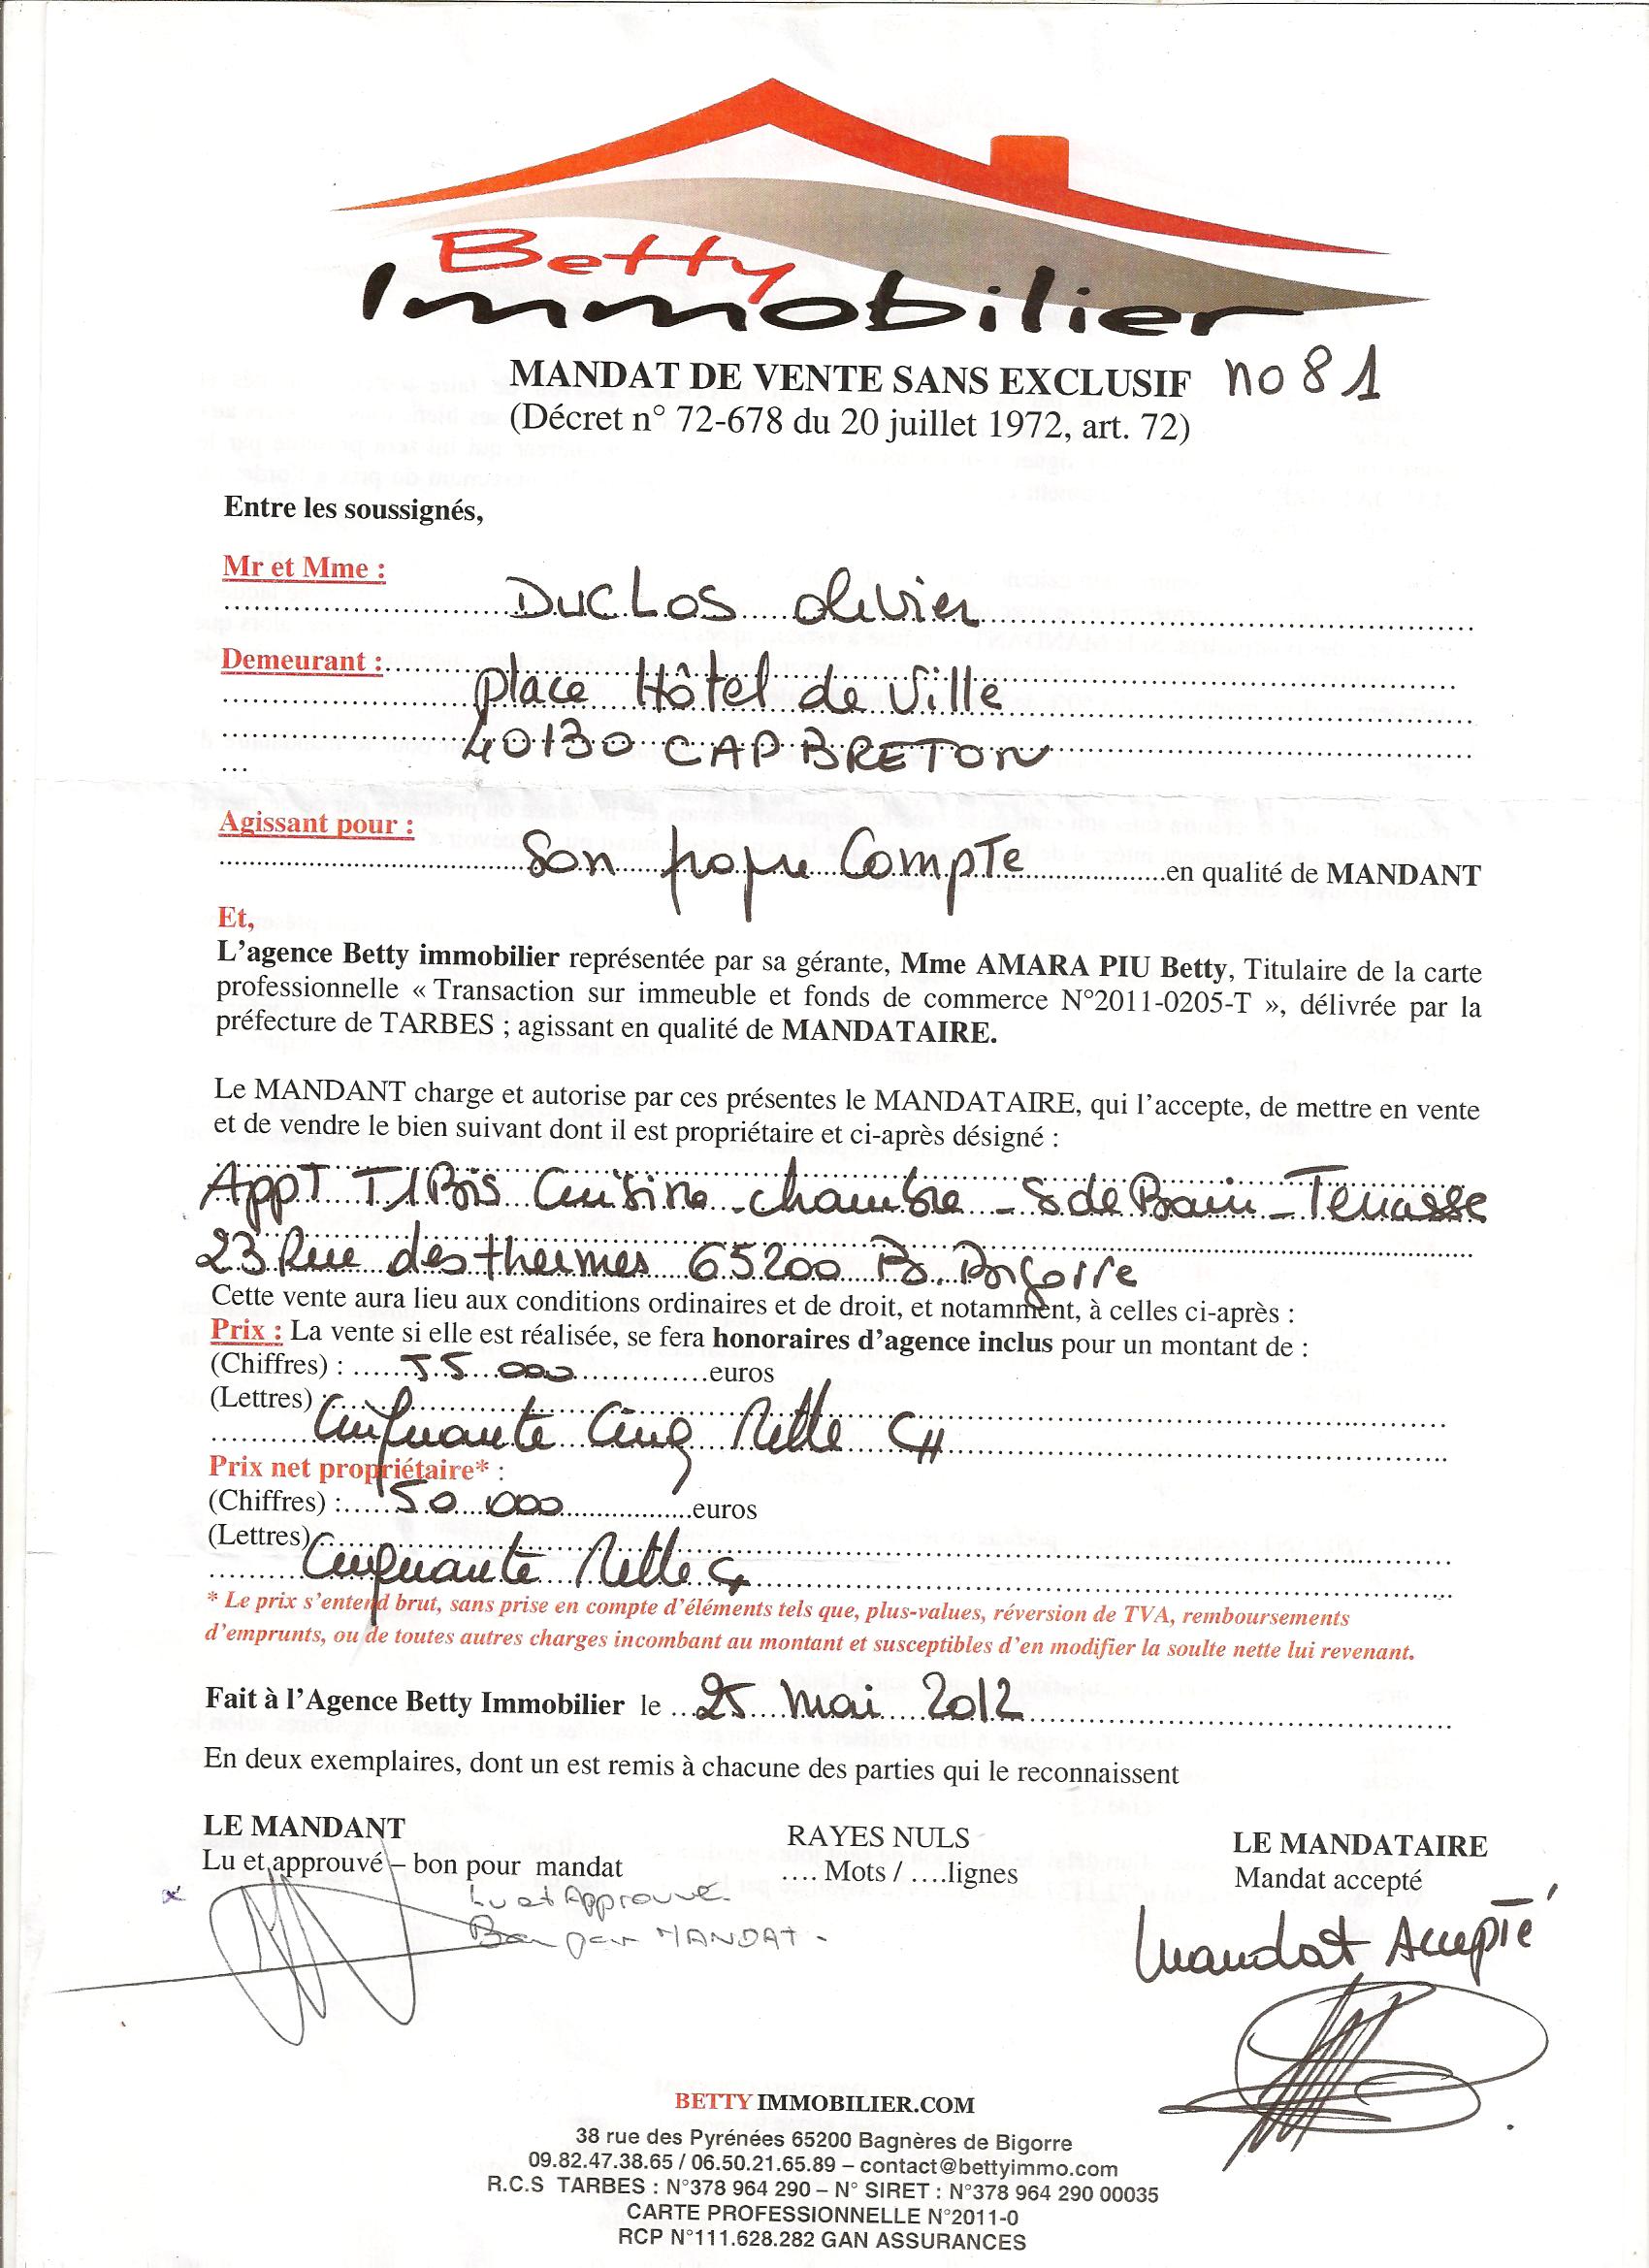 Betty
Immobilier
MANDAT DE VENTE SANS EXCLUSIF no 81
(Décret n° 72-678 du 20 juillet 1972, art. 72)
Entre les soussignés,
Mr et Mme :
DUCLOS Olivier
Demeurant :
place Hôtel de Ville
40130 CAPBRETON
...
Agissant pour :
Son propre Compte en qualité de MANDANT
Et,
L'agence Betty immobilier représentée par sa gérante, Mme AMARA PIU Betty, Titulaire de la carte
professionnelle « Transaction sur immeuble et fonds de commerce N°2011-0205-T », délivrée par la
préfecture de TARBES ; agissant en qualité de MANDATAIRE.
Le MANDANT charge et autorise par ces présentes le MANDATAIRE, qui l'accepte, de mettre en vente
et de vendre le bien suivant dont il est propriétaire et ci-après désigné :
AppT T1Bis Cuisine - chambre - S de Bain - Terrasse
23 Rue des thermes 65200 B. Bigorre
Cette vente aura lieu aux conditions ordinaires et de droit, et notamment, à celles ci-après :
Prix : La vente si elle est réalisée, se fera honoraires d'agence inclus pour un montant de :
(Chiffres) : 55 000 euros
(Lettres)
Cinquante Cinq Mille
Prix net propriétaire* :
(Chiffres) : 50 000 euros
(Lettres)
Cinquante Mille
* Le prix s'entend brut, sans prise en compte d'éléments tels que, plus-values, réversion de TVA, remboursements
d'emprunts, ou de toutes autres charges incombant au montant et susceptibles d'en modifier la soulte nette lui revenant.
Fait à l'Agence Betty Immobilier le 25 mai 2012
En deux exemplaires, dont un est remis à chacune des parties qui le reconnaissent
LE MANDANT
Lu et approuvé – bon pour mandat
Lu et Approuvé
Bon pour MANDAT.
RAYES NULS
.... Mots / ....lignes
LE MANDATAIRE
Mandat accepté
Mandat Accepté
BETTY IMMOBILIER.COM
38 rue des Pyrénées 65200 Bagnères de Bigorre
09.82.47.38.65 / 06.50.21.65.89 – contact@bettyimmo.com
R.C.S TARBES : N°378 964 290 – N° SIRET : N°378 964 290 00035
CARTE PROFESSIONNELLE N°2011-0
RCP N°111.628.282 GAN ASSURANCES